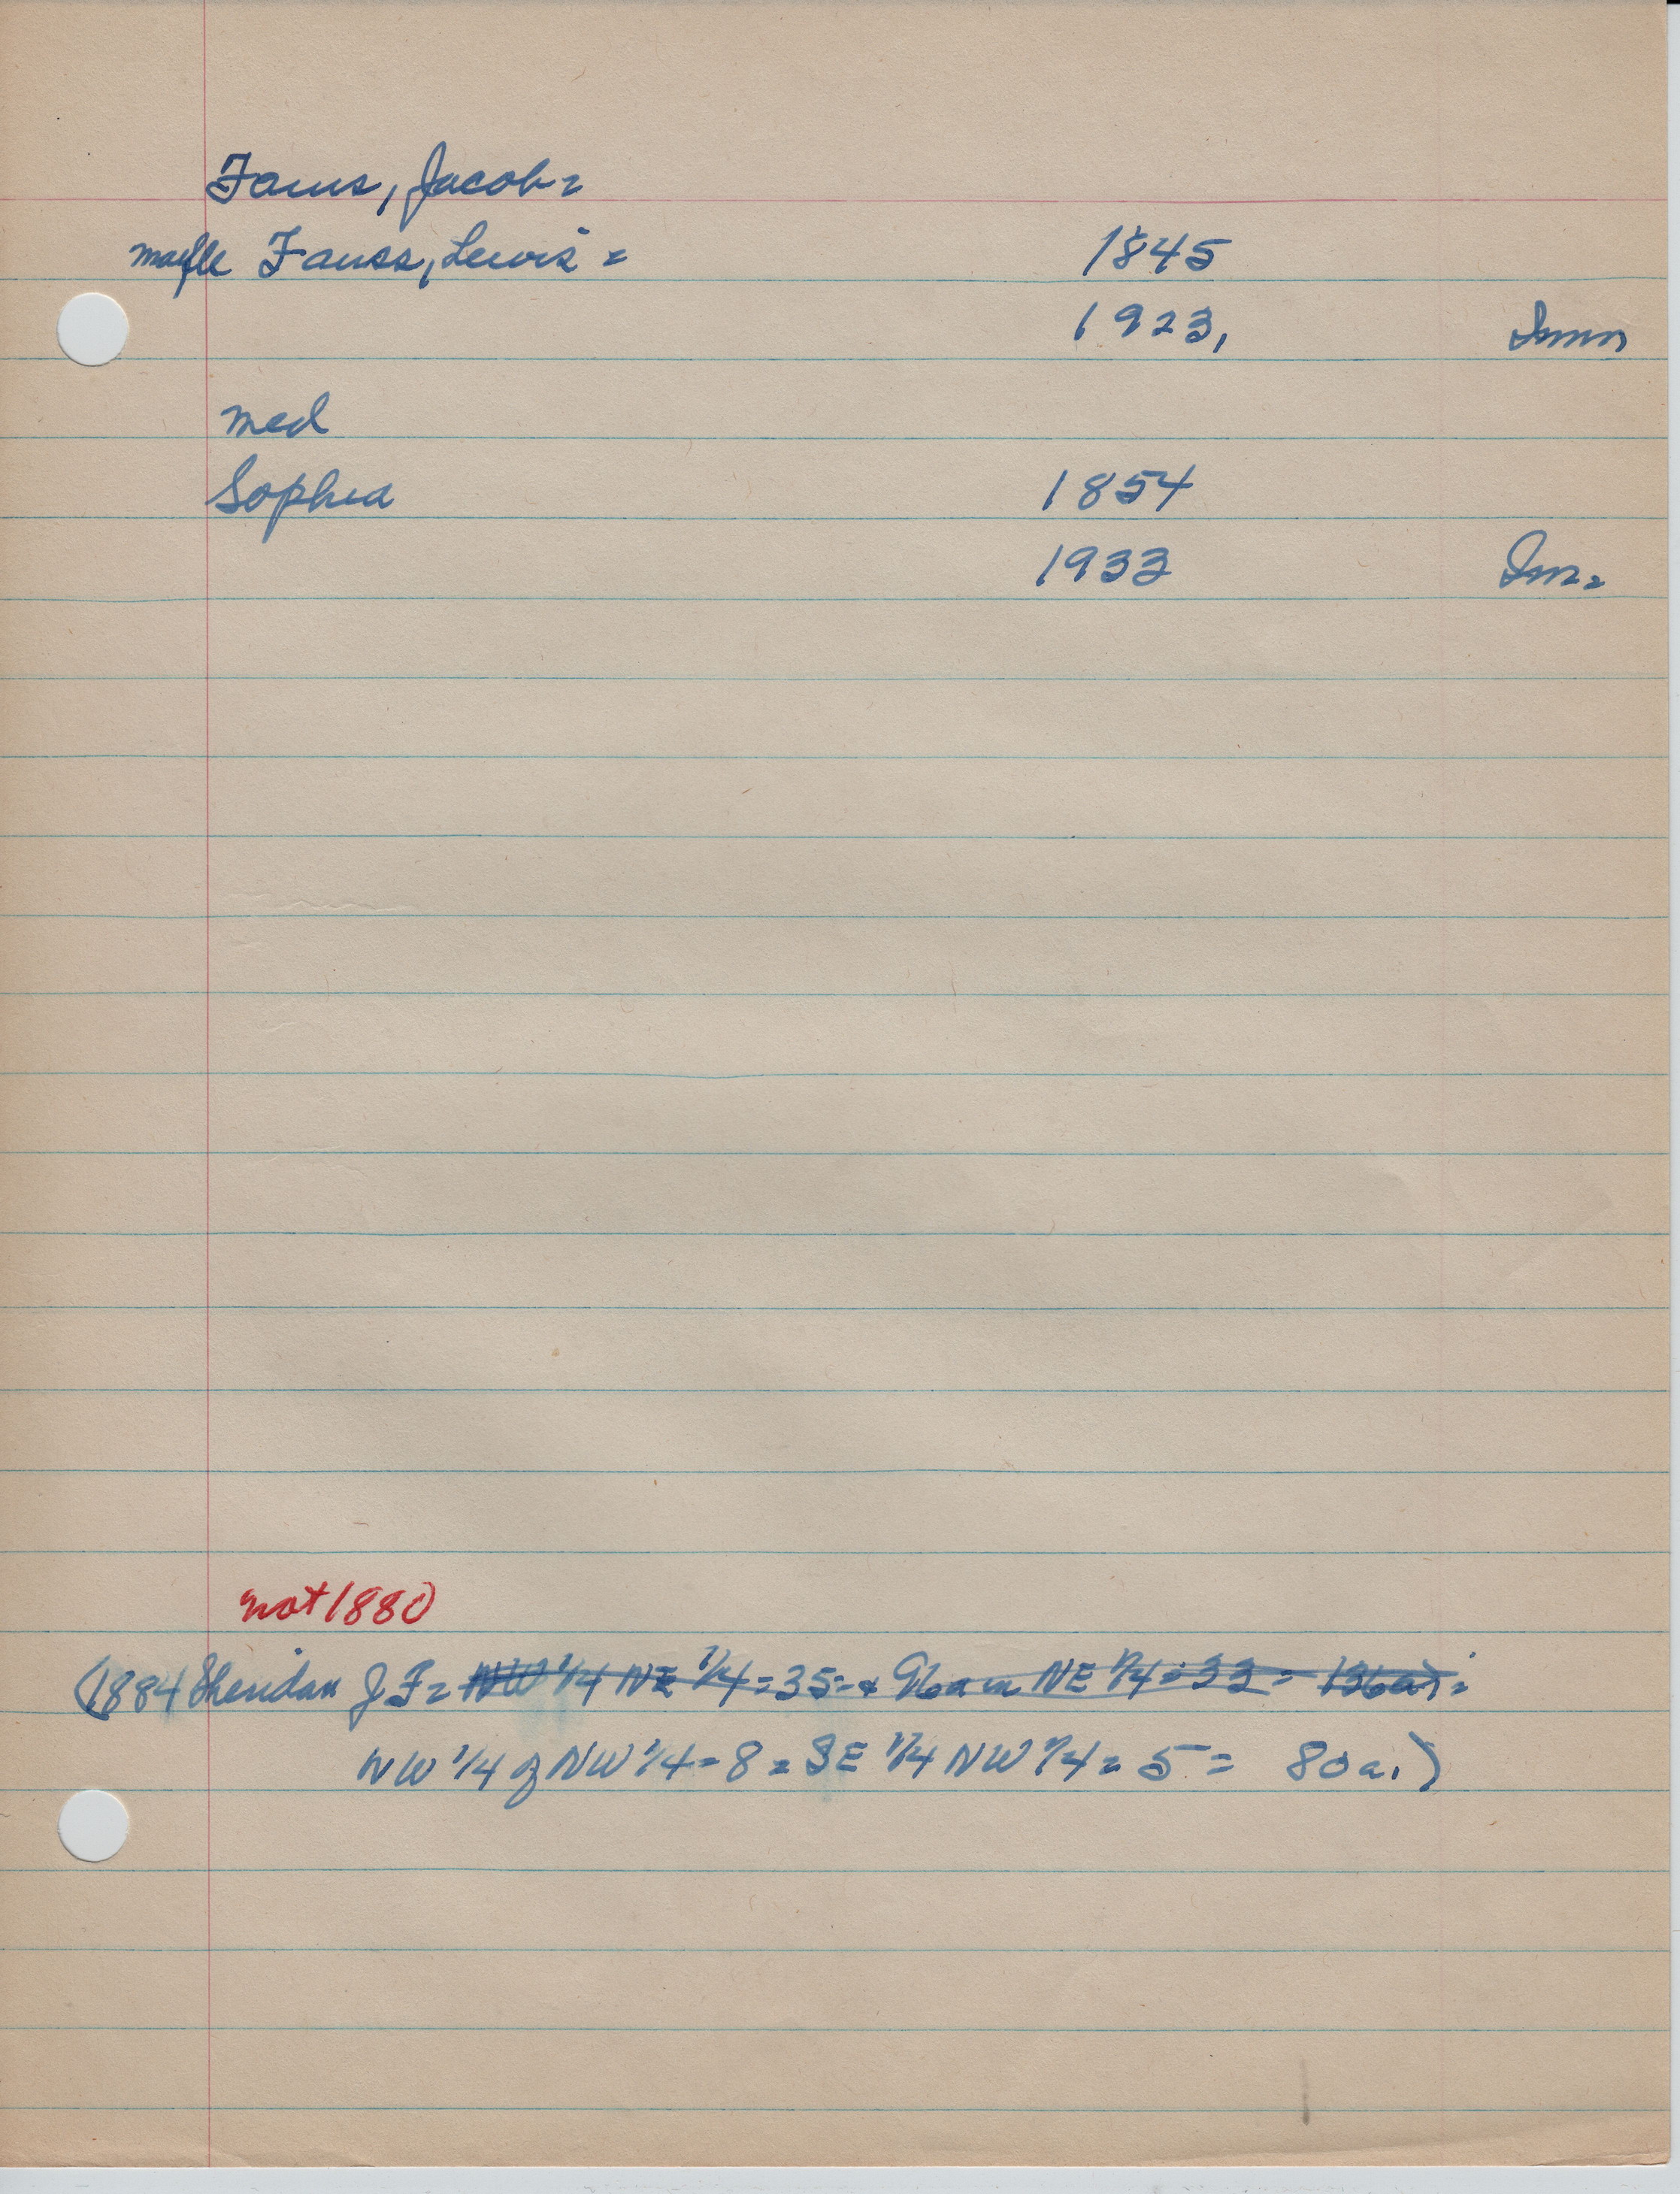 Faus, Jacob=
maybe Fauss, Lewis =
1845
1923, Imm
med
Sophia 1854
1933 Im=
not 1880
(1884 Sheridan J F= NW 1/4 NE 1/4 = 35 = & 96 a in NE 1/4 = 33 = 136a) =
NW 1/4 of NW 1/4 = 8 = SE 1/4 NW 1/4 = 5 = 80 a.)